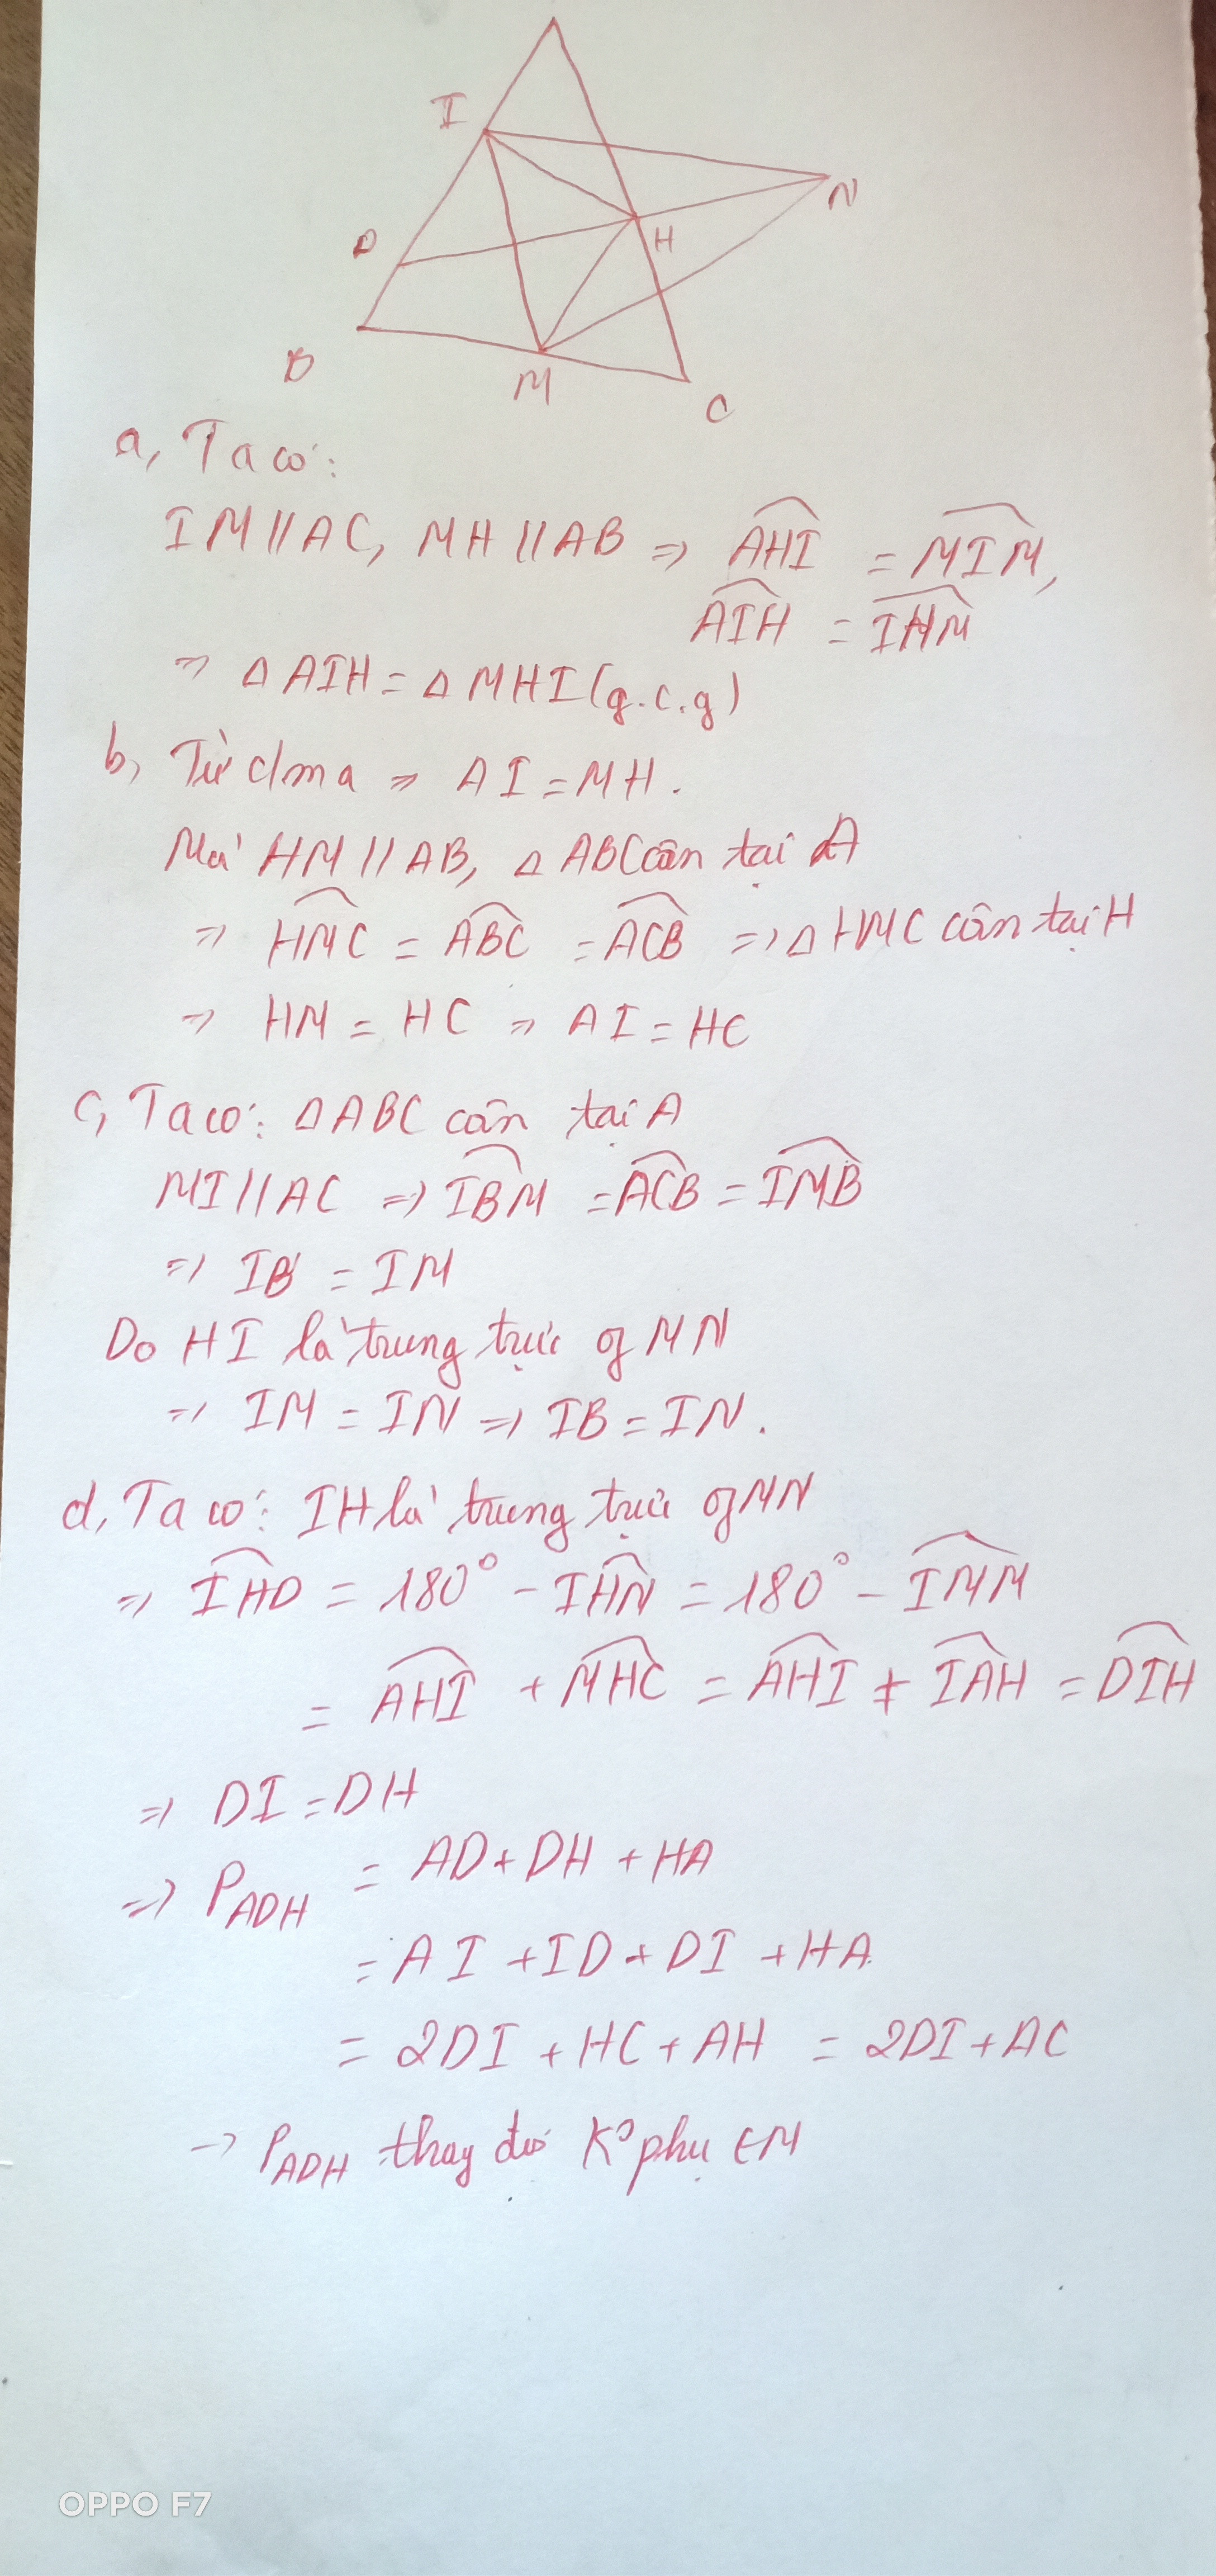 I
N
D
H
B
M
C
a, Ta có:
IM // AC, MH // AB => AHI = MIM,
AIH = IHM
=> Δ AIH = Δ MHI (g.c.g)
b, Từ cma => AI = MH.
Mà HM // AB, Δ ABC cân tại A
=> HMC = ABC = ACB => Δ HMC cân tại H
=> HM = HC => AI = HC
c, Ta có: Δ ABC cân tại A
MI // AC => IBM = ACB = IMB
=> IB = IM
Do HI là trung trực of MN
=> IM = IN => IB = IN.
d, Ta có: IH là trung trực of MN
=> IHD = 180° - IHN = 180° - IMM
= AHI + MHC = AHI + IAH = DIH
=> DI = DH
=> P_ADH = AD + DH + HA
= AI + ID + DI + HA
= 2DI + HC + AH = 2DI + AC
-> P_ADH thay đổi K° phụ M
OPPO F7